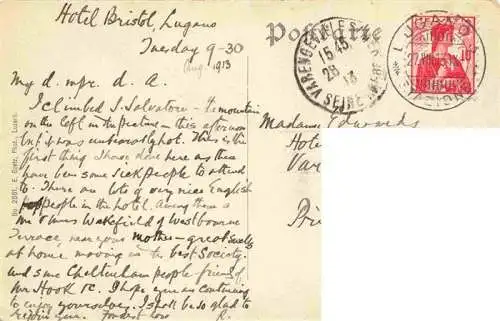 Hotel Bristol, Lugano
Tuesday 9-30
Aug 1913
Postkarte
My d.
I climbed S. Salvatore - the mountain
on the left in the picture in this afternoon
but it was unbearably hot. This is the
first thing I have done here as there
have been some sick people to attend
to. There are lots of very nice English
people in the hotel. Among them a
Mr & Mrs Wakefield of Westbourne
Terrace, near your mother - great swells
at home moving in the best Society.
and some Cheltenham people friends of
Mr Hook &c. I hope you are continuing
to enjoy yourselves. I shall be so glad to
rejoin you. Fondest love R.
VARENGEVILLE
15 45
28
13
SEINE
LUGANO
10
Madame Edwards
Hote
Var
No. 2501 E. Goetz, Phot., Luzern.